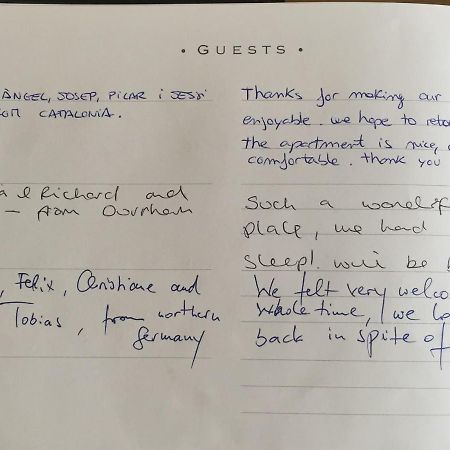 • GUESTS •
ÀNGEL, JOSEP, PILAR i JESSI
CATALONIA.
Thanks for making our
enjoyable. we hope to reto
the apartment is nice,
comfortable. thank you
Richard and
— from Durham
Such a wonderf
place, we had
sleep! we'll be b
, Felix, Christiane and
Tobias, from northern
Germany
We felt very welco
whole time, we lo
back in spite of